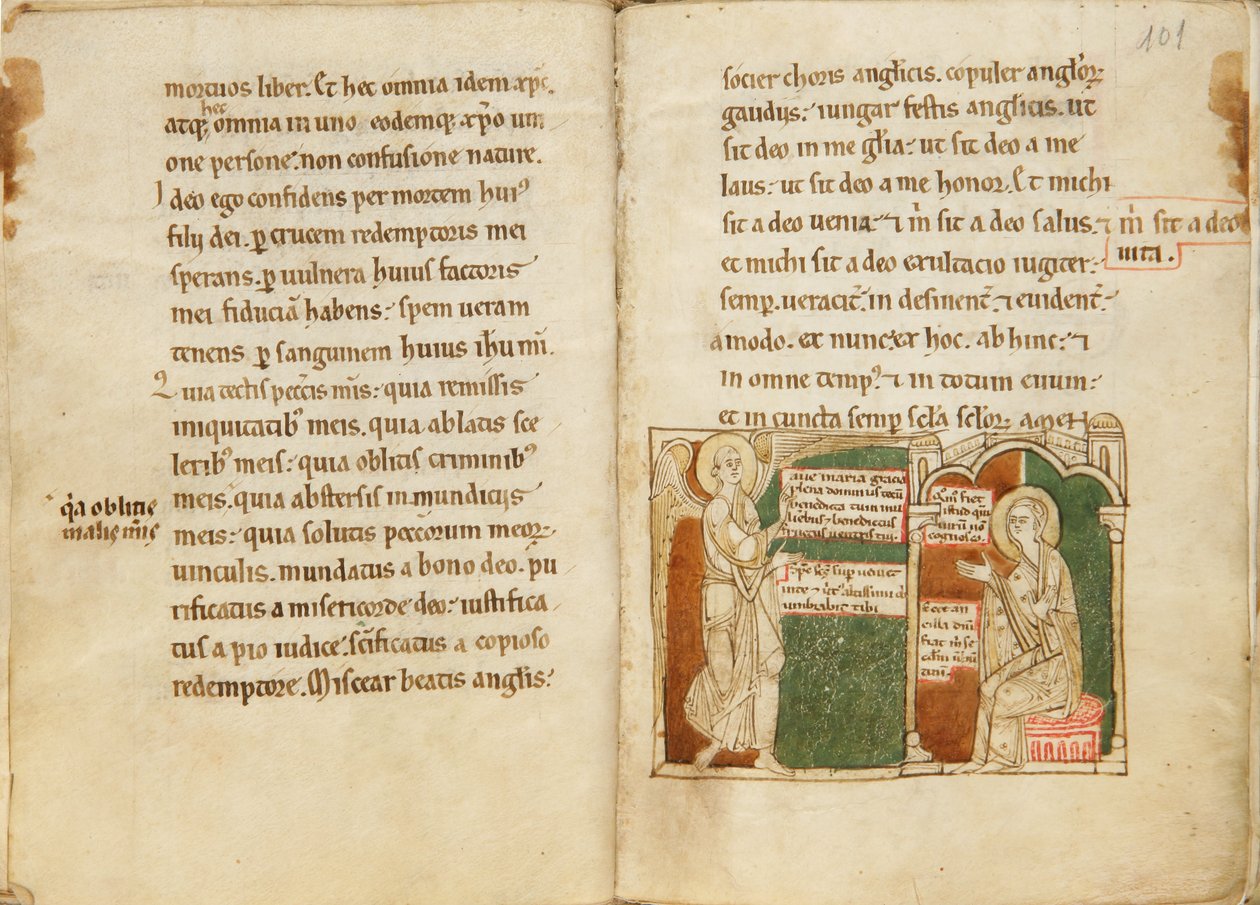 mortuos liber. Et hec omnia idem xpc.
hec
atq; omnia in uno eodemq; xpo uni
one persone: non confusione nature.
Ideo ego confidens per mortem hui9
filij dei. p crucem redemptoris mei
sperans. p uulnera huius factoris
mei fiduciā habens: spem ueram
tenens p sanguinem huius ihu mī.
Quia tectis peccīs mīs: quia remissis
iniquitatib9 meis. quia ablatis sce
lerib9 meis: quia oblitis criminib9
meis. quia abstersis inmundicijs
q̇a oblitis
malis mīs
meis: quia solutis peccōrum meor
uinculis. mundatus a bono deo. pu
rificatus a misericorde deo: iustifica
tus a pio iudice. scīficatus a copioso
redemptore. Miscear beatis anglis:
101
socier choris anglicis. copuler anglor
gaudijs: iungar festis anglicis. ut
sit deo in me glia: ut sit deo a me
laus: ut sit deo a me honor. Et michi
sit a deo uenia: ⁊ m̄ sit a deo salus. ⁊ m̄ sit a deo
uita.
et michi sit a deo exultacio iugiter:
semp. ueracit. in desinent. ⁊ euident.
amodo. ex nunc: ex hoc. ab hinc: ⁊
in omne temp9. ⁊ in totum euum:
et in cuncta semp scła scłor. amen
aue maria gracia
plena dominus tecū
benedicta tu in mu
lieribus ⁊ benedictus
fructus uentris tui.
spc scs sup ueniet
in te ⁊ uirt9 altissimi ob
umbrabit tibi
Qm̄ fiet
istud qm̄
uirū nō
cognosco.
Ecce an
cilla dnī
fiat m̄ se
cdm̄ uerbū
tuum.